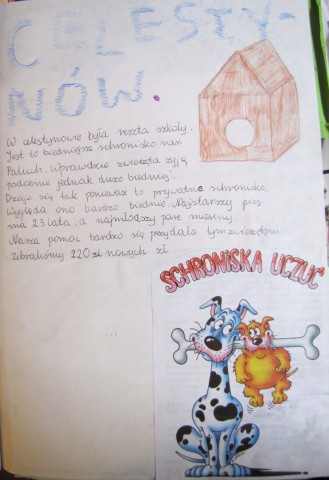 CELESTY-
NÓW.
W celestynowie była reszta szkoły.
Jest to biedniejsze schronisko niż
Paluch. Wprawdzie zwierzęta żyją
podobnie jednak dużo biedniej.
Dzieje się tak ponieważ to prywatne schronisko.
Wygląda ono bardzo biednie. Najstarszy pies
ma 23 lata, a najmłodszy parę miesięcy.
Nasza pomoc bardzo się przydała tym zwierzętom
zebraliśmy 220 zł nowych zł
SCHRONISKA UCZUĆ